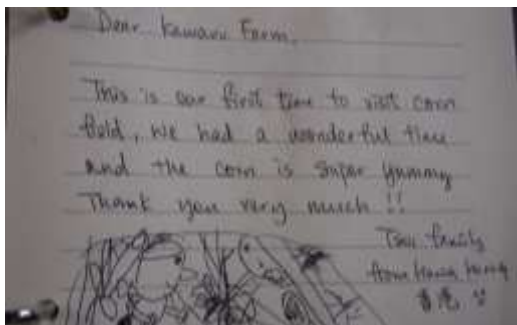 Dear Kawaru Farm,
This is our first time to visit corn
field, We had a wonderful time
and the corn is super yummy
Thank you very much !!
family
from Hong Kong
香港